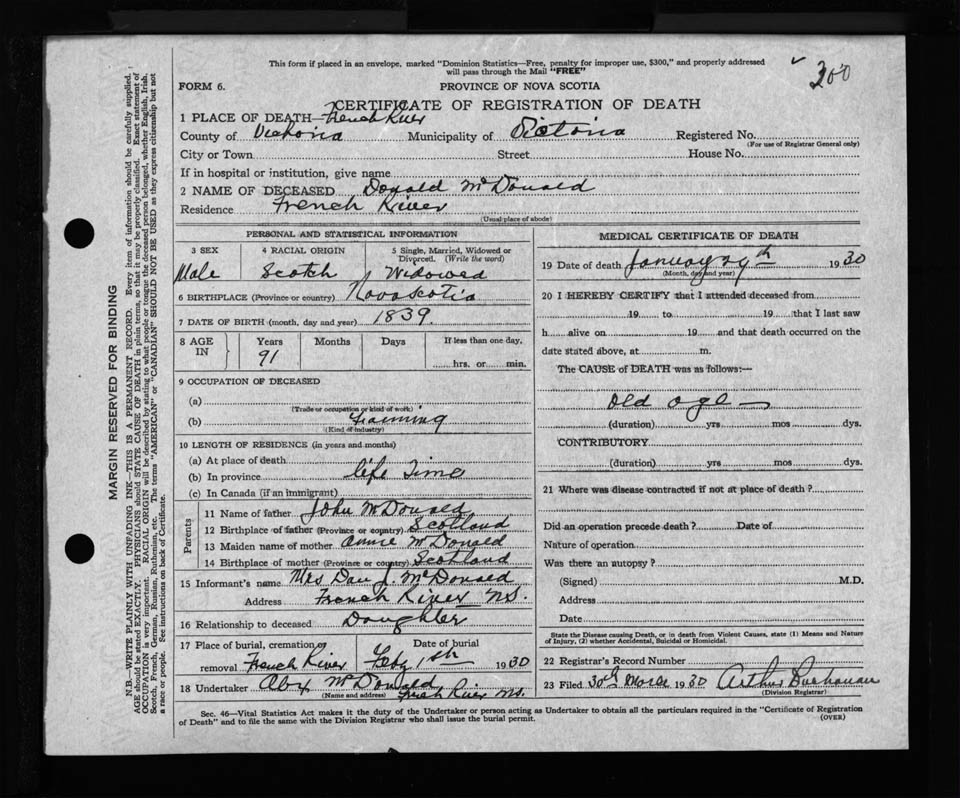 This form if placed in an envelope, marked "Dominion Statistics—Free, penalty for improper use, $300," and properly addressed
will pass through the Mail "FREE"
300
FORM 6.
PROVINCE OF NOVA SCOTIA
CERTIFICATE OF REGISTRATION OF DEATH
1 PLACE OF DEATH—French River
County of Victoria Municipality of Victoria Registered No.
(For use of Registrar General only)
City or Town Street House No.
If in hospital or institution, give name
2 NAME OF DECEASED Donald McDonald
Residence French River
(Usual place of abode)
PERSONAL AND STATISTICAL INFORMATION
3 SEX 4 RACIAL ORIGIN 5 Single, Married, Widowed or
Divorced. (Write the word)
Male Scotch Widowed
6 BIRTHPLACE (Province or country) Nova Scotia
7 DATE OF BIRTH (month, day and year) 1839
8 AGE IN Years Months Days If less than one day,
91 hrs. or min.
9 OCCUPATION OF DECEASED
(a)
(Trade or occupation or kind of work)
(b) Farming
(Kind of industry)
10 LENGTH OF RESIDENCE (in years and months)
(a) At place of death
(b) In province life Time
(c) In Canada (if an immigrant)
Parents
11 Name of father John McDonald
12 Birthplace of father (Province or country) Scotland
13 Maiden name of mother Annie McDonald
14 Birthplace of mother (Province or country) Scotland
15 Informant's name Mrs Dan J. McDonald
Address French River N.S.
16 Relationship to deceased Daughter
17 Place of burial, cremation, Date of burial
removal French River Feby 1st 1930
18 Undertaker McDonald French River N.S.
(Name and address)
MEDICAL CERTIFICATE OF DEATH
19 Date of death January 29th 1930
(Month, day and year)
20 I HEREBY CERTIFY that I attended deceased from
19 to 19 that I last saw
h alive on 19 and that death occurred on the
date stated above, at m.
The CAUSE of DEATH was as follows:—
Old age
(duration) yrs mos dys.
CONTRIBUTORY
(duration) yrs mos dys.
21 Where was disease contracted if not at place of death?
Did an operation precede death? Date of
Nature of operation
Was there an autopsy?
(Signed) M.D.
Address
Date
State the Disease causing Death, or in death from Violent Causes, state (1) Means and Nature
of Injury, (2) whether Accidental, Suicidal or Homicidal.
22 Registrar's Record Number
23 Filed 30th 1930 Arthur Buchanan
(Division Registrar)
Sec. 46—Vital Statistics Act makes it the duty of the Undertaker or person acting as Undertaker to obtain all the particulars required in the "Certificate of Registration
of Death" and to file the same with the Division Registrar who shall issue the burial permit.
(OVER)
MARGIN RESERVED FOR BINDING
N.B.—WRITE PLAINLY WITH UNFADING INK—THIS IS A PERMANENT RECORD. Every item of information should be carefully supplied.
AGE should be stated EXACTLY. PHYSICIANS should STATE CAUSE OF DEATH in plain terms, so that it may be properly classified. Exact statement of
OCCUPATION is very important. RACIAL ORIGIN will be described by stating to what people or tongue the deceased person belonged, whether English, Irish,
Scotch, French, German, Russian, Ruthenian, etc. The terms "AMERICAN" or "CANADIAN" SHOULD NOT BE USED as they express citizenship but not
a race or people. See instructions on back of Certificate.